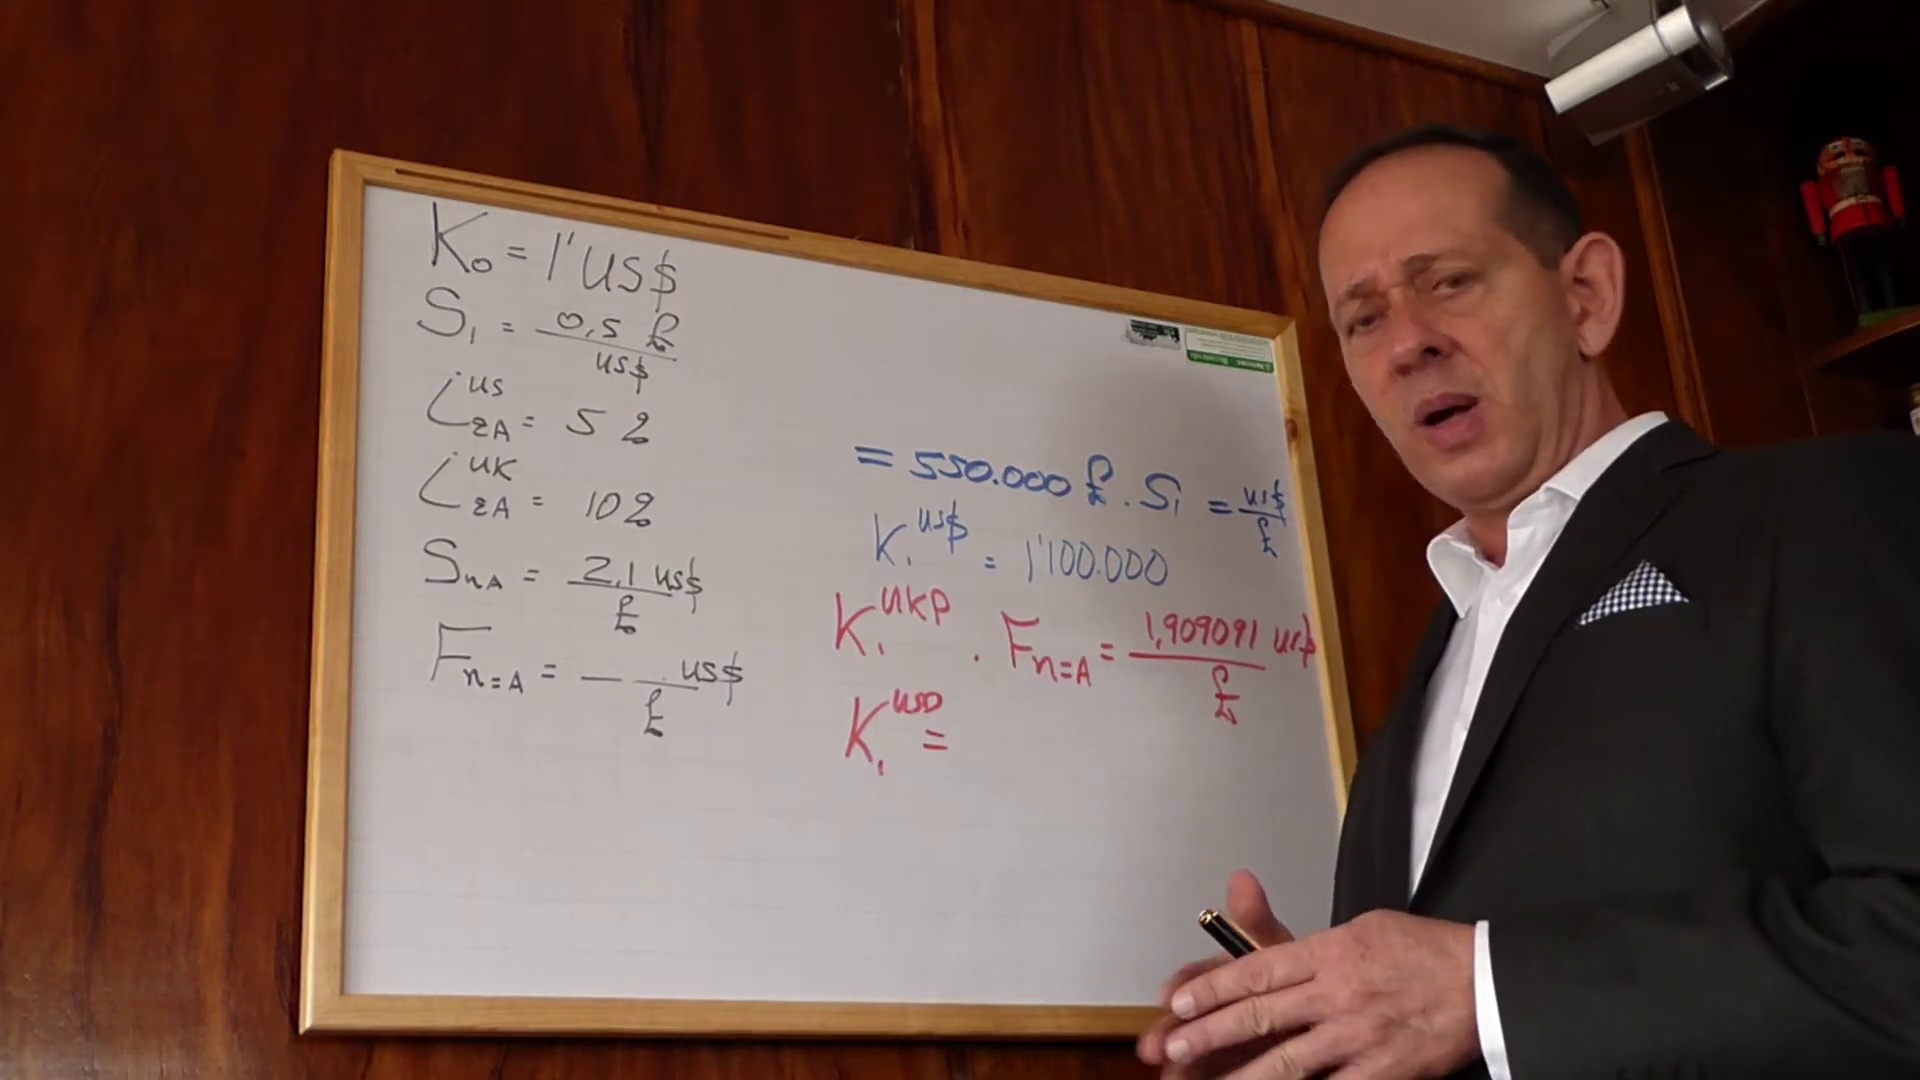 K₀ = 1' US$
S₁ = 0,5 £ / US$
i US ZA = 5 %
i UK ZA = 10 %
S nA = 2,1 US$ / £
F n=A = — — US$ / £
= 550.000 £ . S₁ = US$ / £
K₁ US$ = 1'100.000
K₁ UKP . F n=A = 1,909091 US$ / £
K₁ USD =